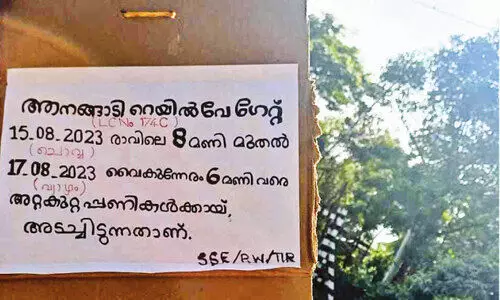 ആനങ്ങാടി റെയിൽവേ ഗേറ്റ്
(LC No 174C)
15.08.2023 രാവിലെ 8 മണി മുതൽ
(ചൊവ്വ)
17.08.2023 വൈകുന്നേരം 6 മണി വരെ
(വ്യാഴം)
അറ്റകുറ്റപ്പണികൾക്കായ്,
അടച്ചിടുന്നതാണ്.
SSE/P.W/TIR